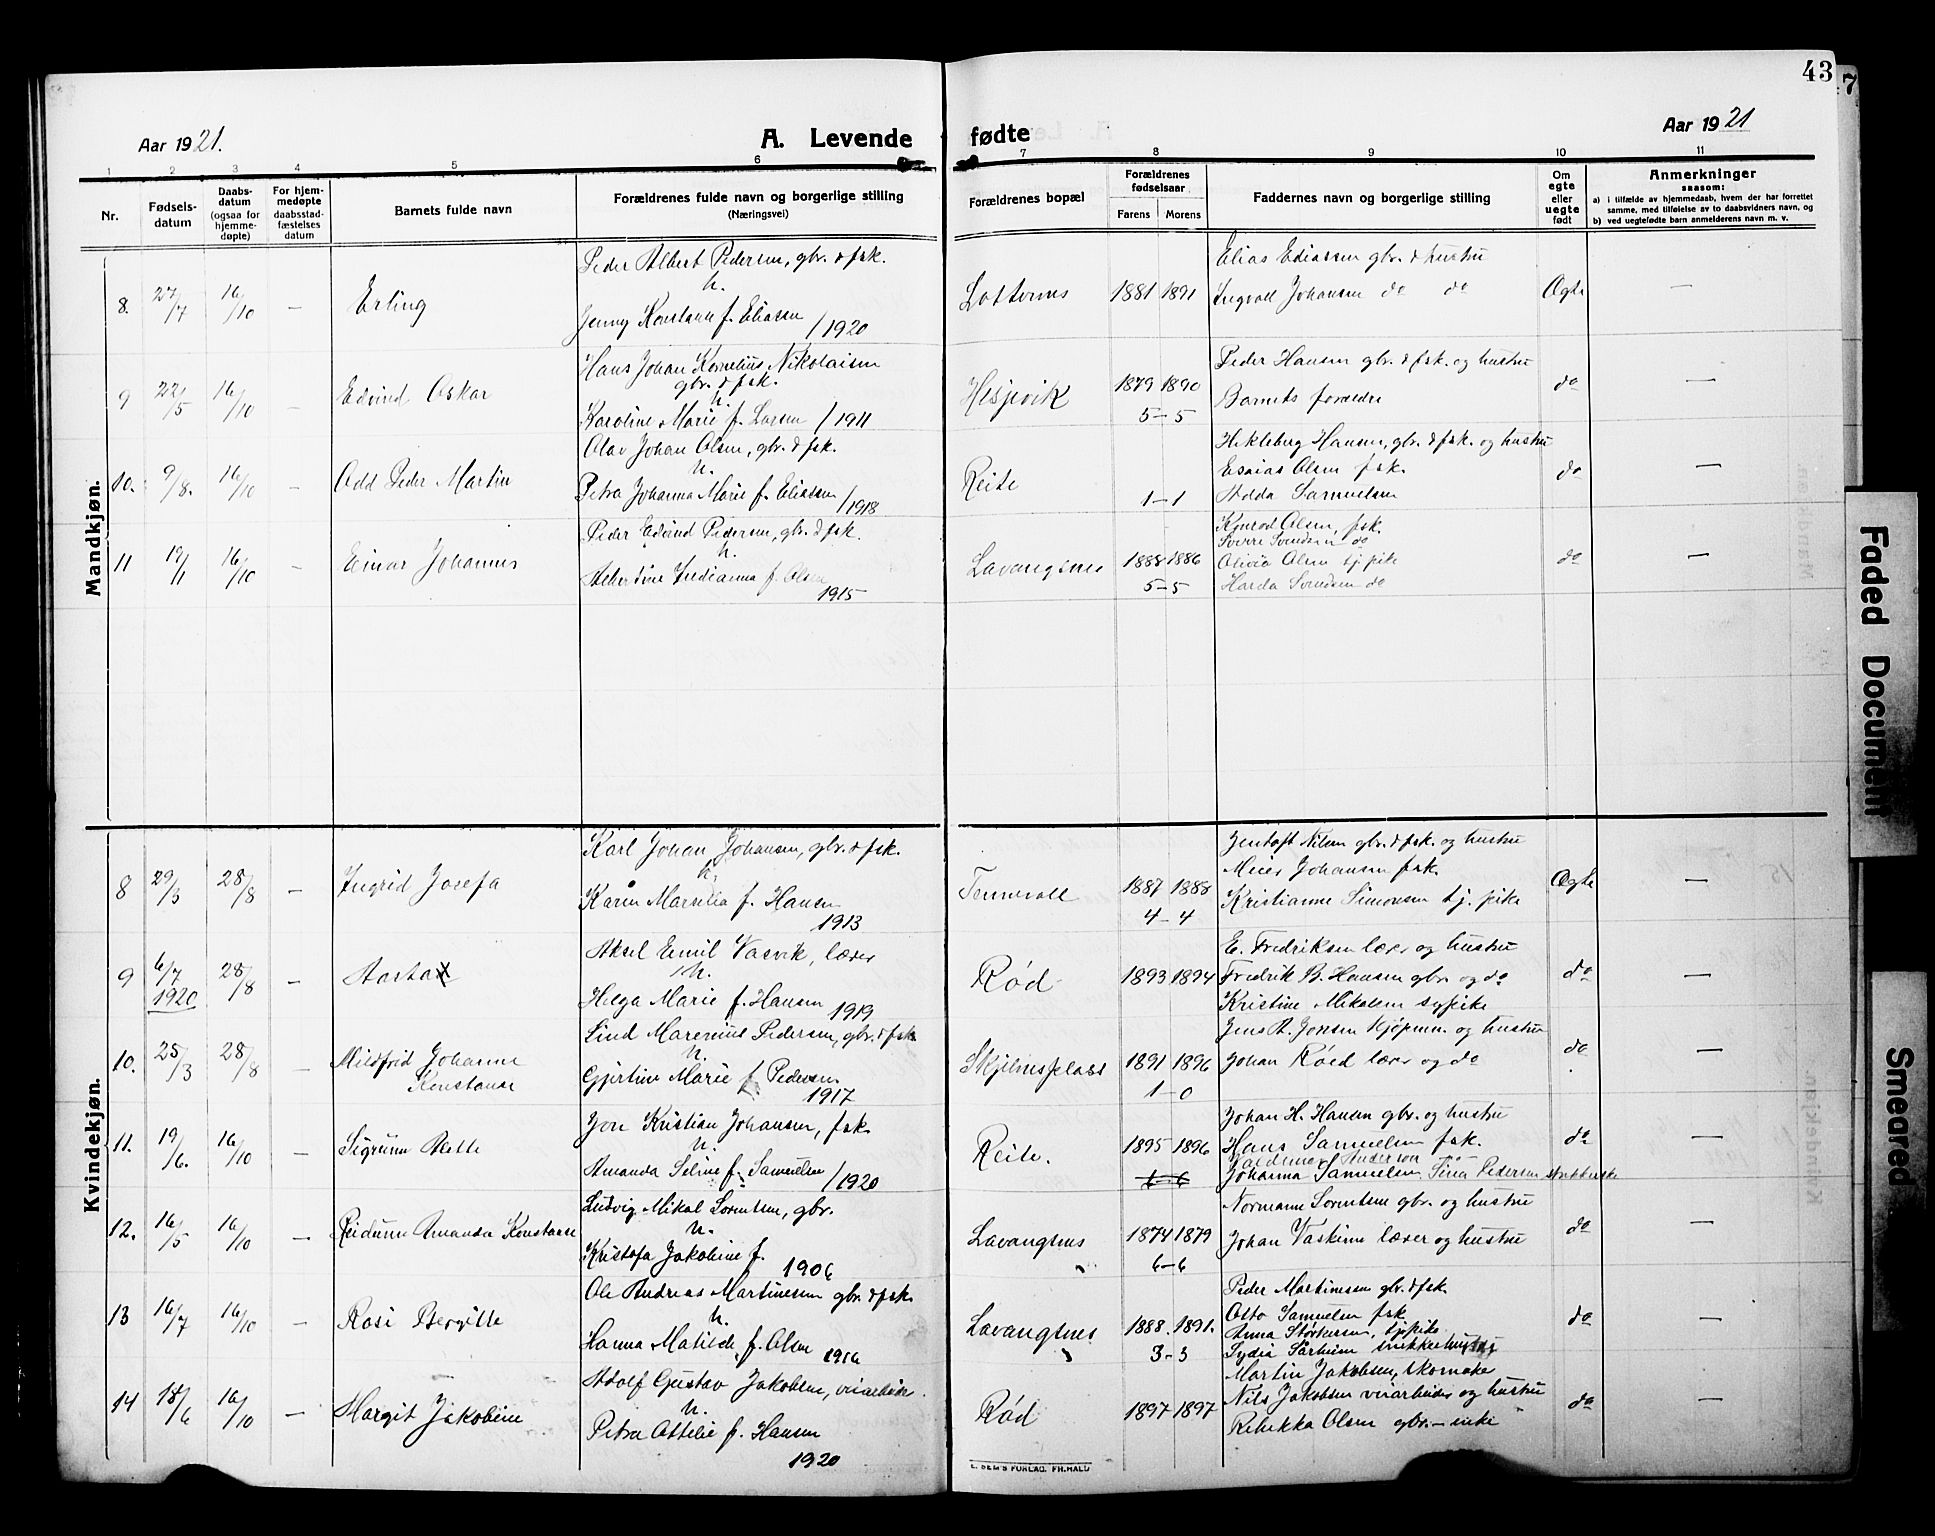 43
7
Aar 1921.
A. Levende
fødte
Aar 1921
1 2 3 4 5 6 7 8 9 10 11
Nr.
Fødsels-
datum
Daabs-
datum
(ogsaa for
hjemme-
døpte)
For hjem-
medøpte
daabsstad-
fæstelses
datum
Barnets fulde navn
Forældrenes fulde navn og borgerlige stilling
(Næringsvei)
Forældrenes bopæl
Forældrenes
fødselsaar
Farens Morens
Faddernes navn og borgerlige stilling
Om
egte
eller
uegte
født
Anmerkninger
saasom:
a) i tilfælde av hjemmedaab, hvem der har forrettet
samme, med tilføielse av to daabsvidners navn, og
b) ved uegtefødte barn anmelderens navn m. v.
Mandkjøn.
8. 27/7 16/10 — Erling
Peder Albert Pedersen, gbr. & fsk.
h.
Jenny Konstanse f. Eliassen /1920
1881 1891
Elias Eliassen gbr. & hustru
Ingvall Johansen do do
Ægte —
9 22/5 16/10 — Edvind Oskar
Hans Johan Kornelius Nikolaisen
gbr. & fsk.
h.
Karoline Marie f. Larsen /1911
Hesjevik 1879 1890
5–5
Peder Hansen gbr. & fsk. og hustru
Barnets forældre
do —
10. 9/8. 16/10 — Odd Peder Martin
Olav Johan Olsen, gbr. & fsk.
h.
Petra Johanna Marie f. Eliassen /1918
Reite
1–1
Hansen, gbr. & fsk. og hustru
Esaias Olsen fsk.
Holda Samuelsen
do —
11 19/1 16/10 — Einar Johannes
Peder Edvind Pedersen, gbr. & fsk.
h.
Albertine Indianna f. Olsen
1915
Lavangsnes 1888 1886
5–5
Konrad Olsen, fsk.
Sverre Svendsen do
Olivia Olsen tj. pike
Harda Svendsen do
do —
Kvindekjøn.
8 29/3 28/8 — Ingrid Josefa
Karl Johan Johansen, gbr. & fsk.
h.
Karen Marselia f. Hansen
1913
Tennevoll 1887 1888
4–4
Jentoft Nilsen gbr. & fsk. og hustru
Meier Johansen fsk.
Kristianne Simonsen tj. pike
Ægte —
9 6/7 1920 28/8 — Aasta
Aksel Emil Vasvik, lærer
h.
Helga Marie f. Hansen 1919
Rød 1893 1894
E. Fredriksen lærer og hustru
Fredrik B. Hansen gbr. og do
Kristine Mikalsen sypike
do —
10. 25/3 28/8 — Mildfrid Johanne
Konstanse
Lind Marenius Pedersen, gbr. & fsk
h.
Gjertine Marie f. Pedersen
1917
Skjelnesplass 1891 1896
1–0
Jens A. Jensen kjøpmn. og hustru
Johan Røed lærer og do
do —
11. 19/6. 16/10 — Sigrunn Mette
Jon Kristian Johansen, fsk.
h.
Amanda Seline f. Samuelsen /1920
Reite. 1895 1896
6–6
Johan H. Hansen gbr. og hustru
Hans Samuelsen fsk.
Valdemar Anderson
Johanna Samuelsen Sina Pedersen
do —
12. 16/5 16/10 — Reidunn Amanda Konstanse
Ludvig Mikal Sorentsen, gbr.
h.
Kristofa Jakobine f.
1906
Lavangsnes 1874 1879
6–6
Normann Sorentsen gbr. og hustru
Johan Vaskinn lærer og hustru
do —
13 16/7 16/10 — Rosi Bergitte
Ole Andreas Martinesen gbr. & fsk
h.
Hanna Matilde f. Olsen 1916
Lavangsnes 1888. 1891.
3–3
Peder Martinessen gbr. & fsk.
Otto Samuelsen fsk.
Anna Størkersen, tj. pike
Lydia Sørheim snekkerhustru
do —
14 18/6 16/10 — Margit Jakobine
Adolf Gustav Jakobsen, veiarbeider
h.
Petra Ottelie f. Hansen
1920
Rød 1897 1897
Martin Jakobsen, skomaker
Nils Jakobsen veiarbeider og hustru
Rebekka Olsen gbr.– enke
do —
E. SEM'S FORLAG. FR.HALD
Faded Document
Smeared